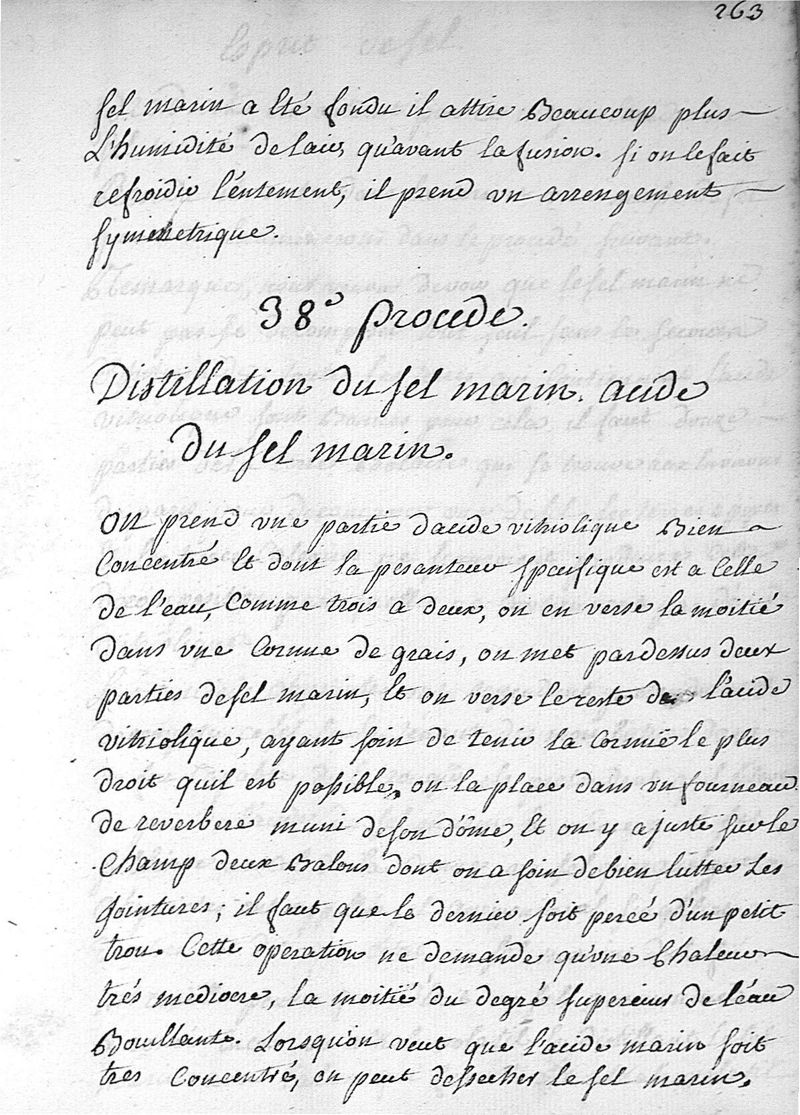 263
sel marin a êté fondu il attire Beaucoup plus
L'humidité delair, qu'avant lafusion. si on lefait
refroidir lentement, il prend un arrengement
symmetrique.
38e procede.
Distillation du sel marin. acide
du sel marin.
On prend une partie dacide vitriolique Bien
Concentré Et dont la pesanteur spécifique est a Celle
de l'eau, Comme trois a deux, on en verse la moitié
dans une Cornue de grais, on met pardessus deux
parties desel marin, Et on verse lereste de l'acide
vitriolique, ayant soin de tenir la Cornuë le plus
droit quil est possible, on la place dans un fourneau
de reverbere muni deson dôme, Et on y ajuste surle
Champ deux Balons dont on a soin debien lutter Les
Jointures; il faut que le dernier soit percé d'un petit
trou. Cette operation ne demande qu'une Chaleur
trés mediocre, la moitié du degré superieur de l'éau
Bouillante. Lorsqu'on veut que l'acide marin soit
tres Concentré, on peut dessecher le sel marin.